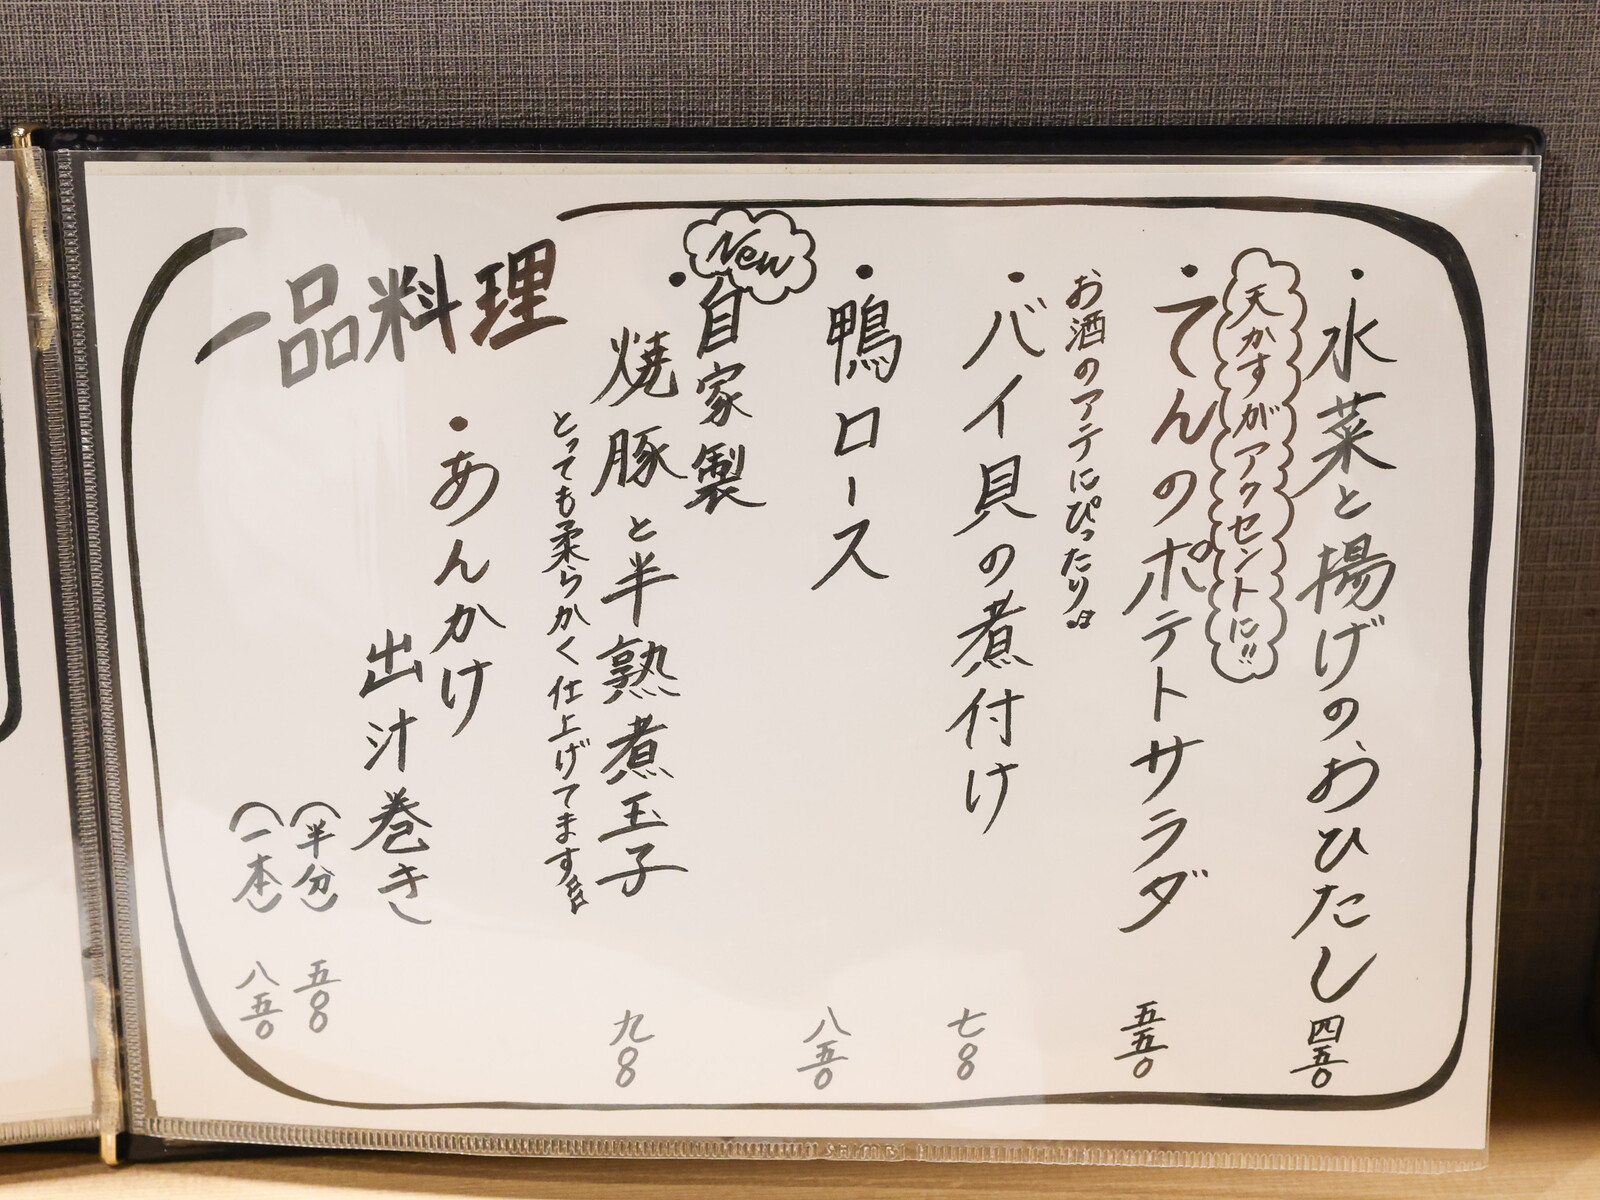 ・水菜と揚げのおひたし 四五〇
天かすがアクセントに!!
・てんのポテトサラダ 五五〇
お酒のアテにぴったり
・バイ貝の煮付け 七〇〇
・鴨ロース 八五〇
New
・自家製
焼豚と半熟煮玉子 九〇〇
とっても柔らかく仕上げてます
一品料理
・あんかけ
出汁巻き
(半分) 五〇〇
(一本) 八五〇